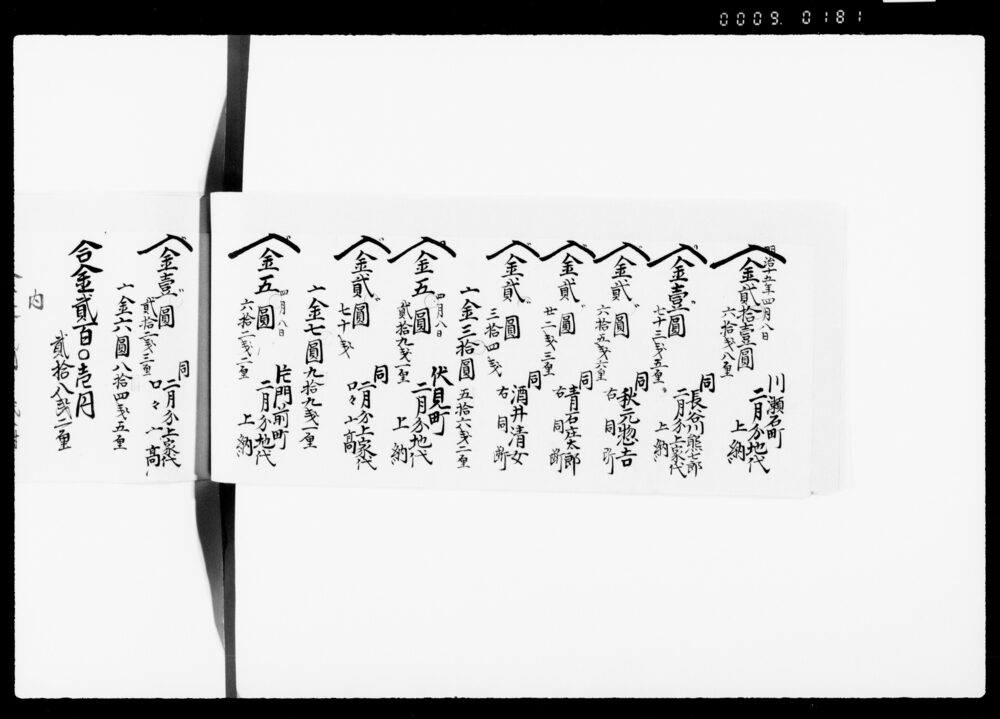 0009 0181
明治十五年四月八日
金貳拾壹圓
六拾戔八厘
川瀬石町
二月分地代
上納
金壹圓
七十三戔五厘
同
長谷川熊七郎
二月分上家代
上納
金貳圓
六拾五戔六厘
同
秋元惣吉
右同断
金貳圓
廿二戔三厘
同
青石庄太郎
右同断
金貳圓
三拾四戔
同
酒井清女
右同断
金三拾圓
五拾六戔二厘
四月八日
金五圓
貳拾九戔一厘
伏見町
二月分地代
上納
金貳圓
七十戔
同
二月分上家代
口々〆高
金七圓九拾九戔一厘
四月八日
金五圓
六拾二戔二厘
片門前町
二月分地代
上納
金壹圓
貳拾二戔三厘
同
二月分上家代
口々〆高
金六圓八拾四戔五厘
合金貳百〇壱円
貳拾八戔二厘
内